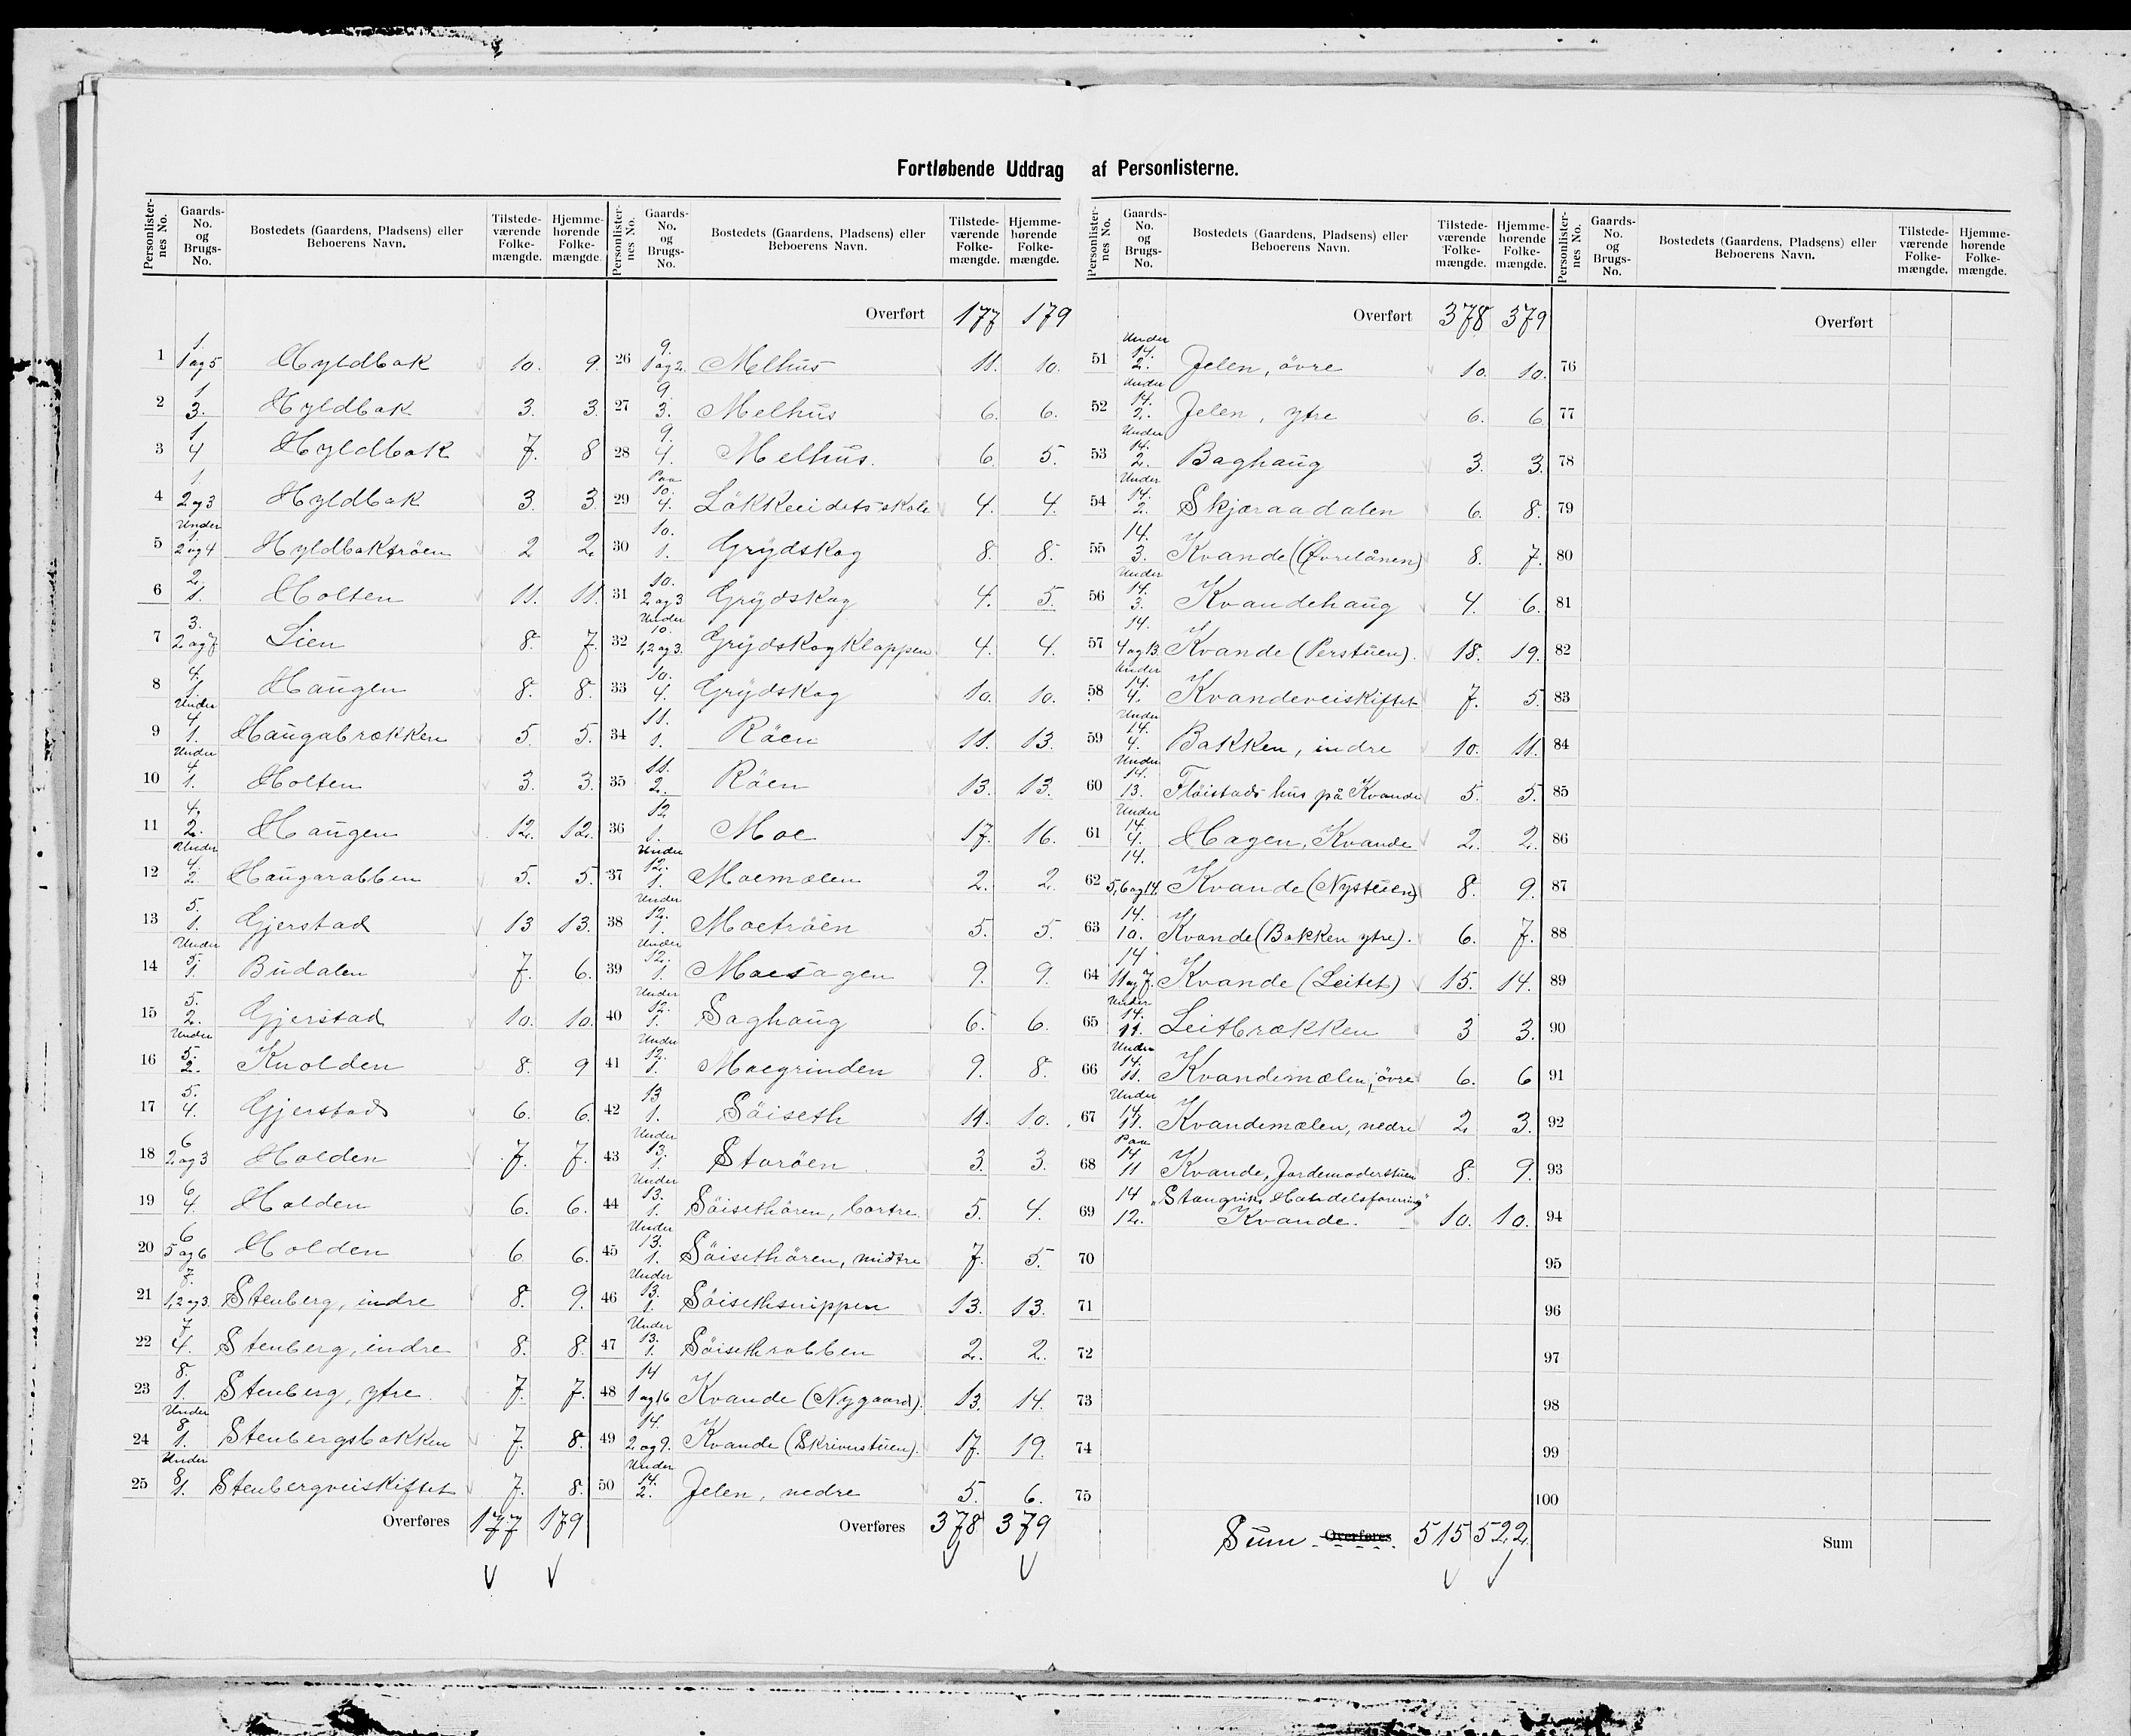 Fortløbende Uddrag af Personlisterne.
Personlisternes No. Gaards-No. og Brugs-No. Bostedets (Gaardens, Pladsens) eller Beboerens Navn. Tilstedeværende Folkemængde. Hjemmehørende Folkemængde.
1 1. 1 og 5 Hyldbak 10. 9.
2 1 3. Hyldbak 3. 3.
3 1 4 Hyldbak 7. 8
4 1. 2 og 3 Hyldbak 3. 3
5 Under 1. 2 og 4 Hyldbaktröen 2 2.
6 2. 1. Holten 11. 11.
7 3. 2 og 7 Lien 8. 7.
8 4. 1. Haugen 8. 8.
9 Under 4 1. Haugabrækken 5. 5.
10 Under 4. 1. Holten 3. 3.
11 4. 2. Haugen 12. 12.
12 Under 4. 2. Haugarabben 5. 5.
13 5. 1. Gjerstad 13 13.
14 Under 5. 1. Budalen 7. 6.
15 5. 2. Gjerstad 10. 10.
16 Under 5. 2. Knolden 8. 9
17 5. 4. Gjerstad 6. 6.
18 6 2 og 3 Holden 7. 7.
19 6 4. Holden 6. 6.
20 6 5 og 6 Holden 6. 6.
21 7. 1, 2 og 3. Stenberg, indre 8. 9.
22 7 4. Stenberg, indre 8. 8.
23 8. 1. Stenberg, ytre. 7. 7.
24 Under 8 1. Stenbergsbakken 7. 8.
25 Under 8 1. Stenbergveiskiftet 7. 8.
Overføres 177 179
Personlisternes No. Gaards-No. og Brugs-No. Bostedets (Gaardens, Pladsens) eller Beboerens Navn. Tilstedeværende Folkemængde. Hjemmehørende Folkemængde.
Overført 177 179
26 9. 1 og 2. Melhus 11. 10.
27 9. 3. Melhus 6. 6.
28 9. 4. Melhus. 6. 5.
29 Paa 10. 4. Lökkeeidets skole 4. 4.
30 10. 1. Grydskog 8. 8.
31 10. 2 og 3 Grydskog 4. 5.
32 Under 10. 1, 2 og 3. Grydskogklappen 4. 4.
33 10. 4. Grydskog 10. 10.
34 11. 1. Röen 11. 13.
35 11. 2. Röen 13. 13.
36 12 1. Moe 17. 16.
37 Under 12. 1. Moemælen 2. 2.
38 Under 12. 1. Moetröen 5. 5.
39 Under 12. 1. Moesagen 9. 9.
40 Under 12. 1. Saghaug 6. 6.
41 Under 12. 1. Moegrinden 9. 8.
42 13 1. Söiseth 11. 10.
43 Under 13. 1. Storöen 3. 3.
44 Under 13. 1. Söisethören, bortre. 5. 4.
45 Under 13. 1. Söisethören, midtre 7. 5.
46 Under 13. 1. Söisethsnippen 13. 13.
47 Under 13. 1. Söisethrabben 2. 2.
48 14 1 og 16 Kvande (Nygaard). 13. 14.
49 14. 2 og 9. Kvande (Skriverstuen). 17. 19.
50 Under 14. 2. Jelen, nedre 5. 6.
Overføres 378 379
Personlisternes No. Gaards-No. og Brugs-No. Bostedets (Gaardens, Pladsens) eller Beboerens Navn. Tilstedeværende Folkemængde. Hjemmehørende Folkemængde.
Overført 378 379
51 Under 14. 2. Jelen, övre 10. 10.
52 Under 14. 2. Jelen, ytre 6. 6
53 Under 14. 2. Baghaug 3. 3.
54 Under 14. 2. Skjæraadalen 6. 8.
55 14. 3. Kvande (Øvrelånen) 8. 7.
56 Under 14. 3. Kvandehaug 4. 6.
57 14. 4 og 13. Kvande (Perstuen). 18. 19.
58 Under 14. 4. Kvandeveiskiftet 7. 5.
59 Under 14. 4. Bakken, indre 10. 11.
60 Under 14. 13. Flöistads hus på Kvande 5. 5.
61 Under 14. 4. Hagen, Kvande 2. 2.
62 14. 5, 6 og 14. Kvande (Nystuen) 8. 9.
63 14. 10. Kvande (Bakken ytre). 6. 7.
64 14 11 og 7. Kvande (Leitet) 15. 14.
65 Under 14. 11. Leitbrækken 3 3.
66 Under 14. 11. Kvandemælen, övre 6. 6
67 Under 14. 11. Kvandemælen, nedre 2. 3.
68 Paa 14 11 Kvande, Jordemoderstuen 8. 9.
69 14 12. "Stangviks Handelsforening" Kvande. 10. 10.
70
71
72
73
74
75
Sum Overføres 515 522.
Personlisternes No. Gaards-No. og Brugs-No. Bostedets (Gaardens, Pladsens) eller Beboerens Navn. Tilstedeværende Folkemængde. Hjemmehørende Folkemængde.
Overført
76
77
78
79
80
81
82
83
84
85
86
87
88
89
90
91
92
93
94
95
96
97
98
99
100
Sum